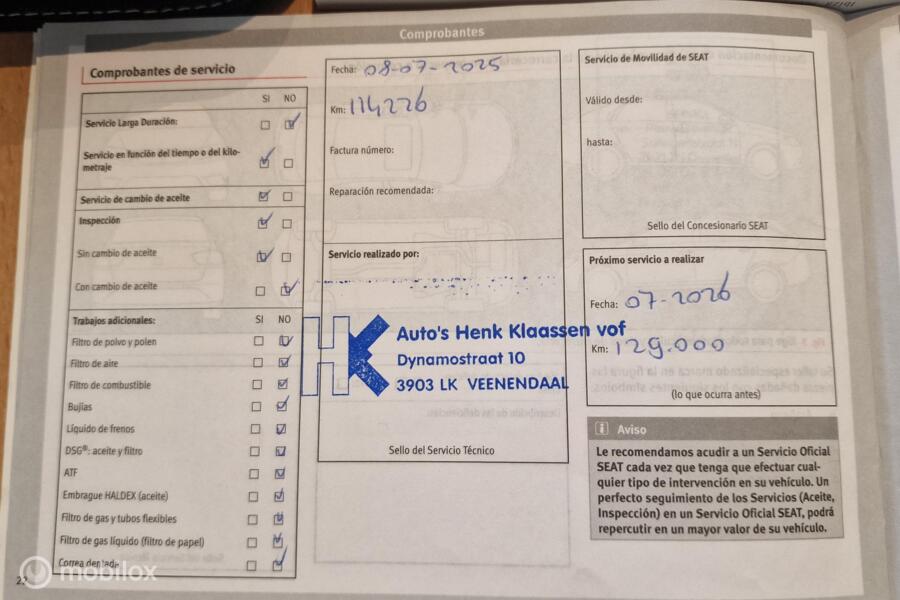 Comprobantes
Comprobantes de servicio
SI NO
Servicio Larga Duración:
Servicio en función del tiempo o del kilo-
metraje
Servicio de cambio de aceite
Inspección
Sin cambio de aceite
Con cambio de aceite
Trabajos adicionales: SI NO
Filtro de polvo y polen
Filtro de aire
Filtro de combustible
Bujías
Líquido de frenos
DSG®: aceite y filtro
ATF
Embrague HALDEX (aceite)
Filtro de gas y tubos flexibles
Filtro de gas líquido (filtro de papel)
Correa dentada
22
Fecha: 08-07-2025
Km: 114226
Factura número:
Reparación recomendada:
Servicio realizado por:
HK
Auto's Henk Klaassen vof
Dynamostraat 10
3903 LK VEENENDAAL
Sello del Servicio Técnico
Servicio de Movilidad de SEAT
Válido desde:
hasta:
Sello del Concesionario SEAT
Próximo servicio a realizar
Fecha: 07-2026
Km: 129.000
(lo que ocurra antes)
i Aviso
Le recomendamos acudir a un Servicio Oficial
SEAT cada vez que tenga que efectuar cual-
quier tipo de intervención en su vehículo. Un
perfecto seguimiento de los Servicios (Aceite,
Inspección) en un Servicio Oficial SEAT, podrá
repercutir en un mayor valor de su vehículo.
mobilox